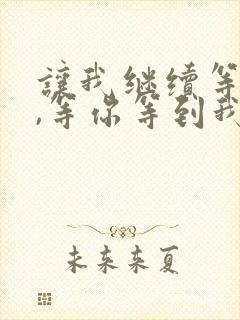 讓我继续等
,等你等到我
未来来夏